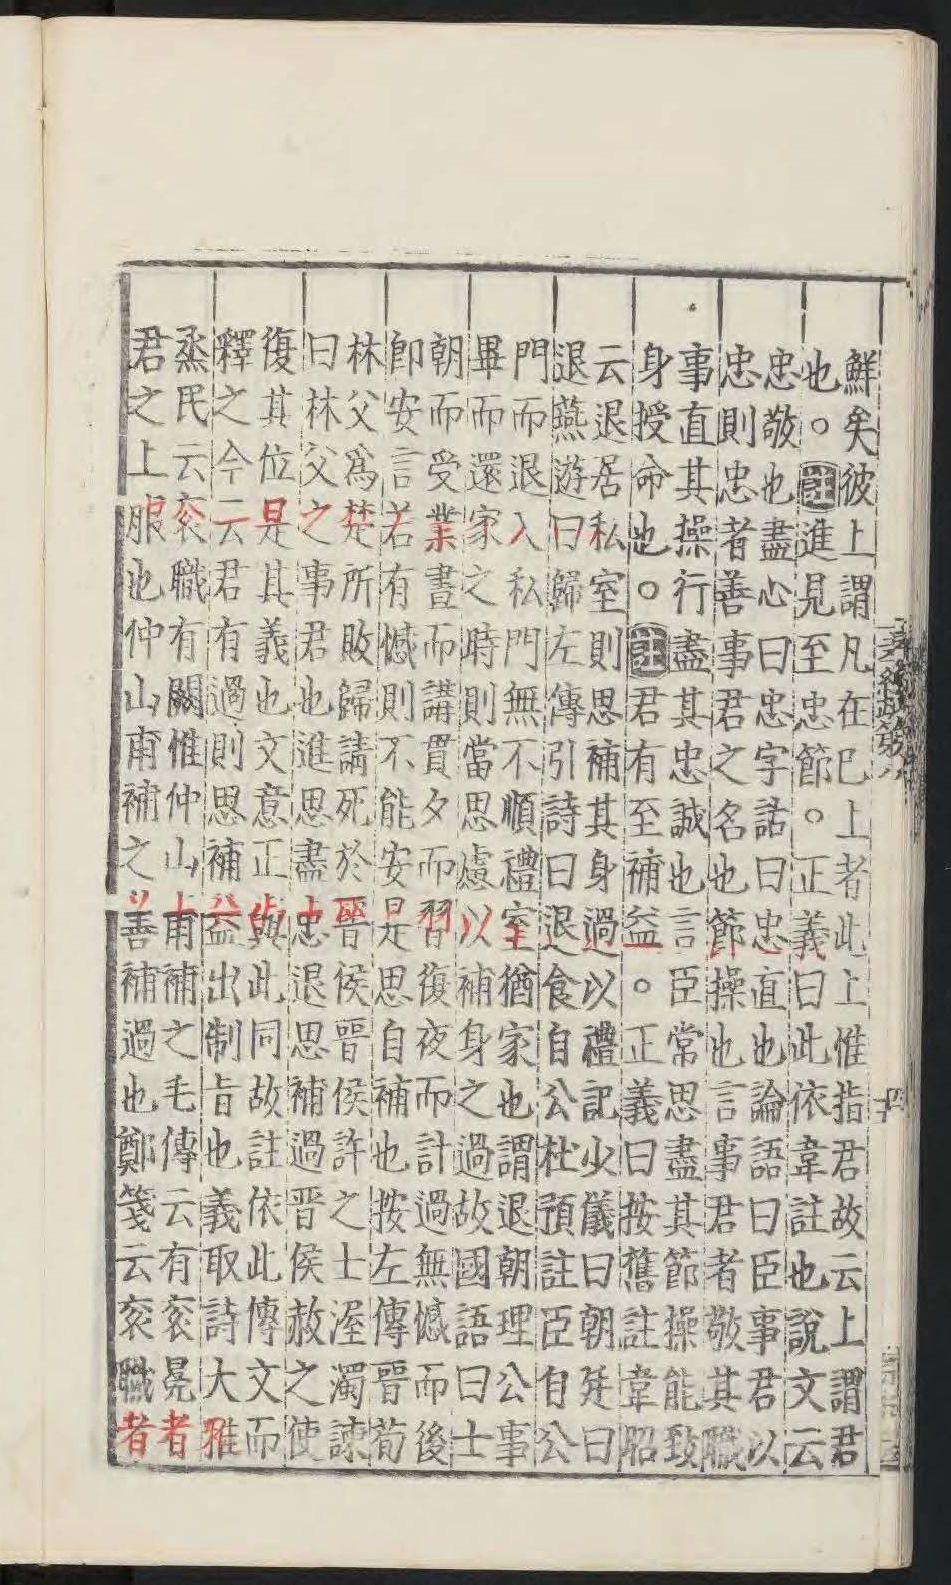 鮮矣彼上謂凡在已上者此上惟指君故云上謂君
也。註進見至忠節。正義曰此依韋註也說文云
忠敬也盡心曰忠字詁曰忠直也論語曰臣事君以
忠則忠者善事君之名也節操也言事君者敬其職
事直其操行盡其忠誠也言臣常思盡其節操能致
身授命也。註君有至補益。正義曰按舊註韋昭
云退居私室則思補其身過以禮記少儀曰朝廷曰
退燕遊曰歸左傳引詩曰退食自公杜預註臣自公
門而退入私門無不順禮室猶家也謂退朝理公事
畢而還家之時則當思慮以補身之過故國語曰士
朝而受業晝而講貫夕而習復夜而計過無憾而後
卽安言若有憾則不能安是思自補也按左傳晉荀
林父爲楚所敗歸請死於晉侯晉侯許之士渥濁諫
曰林父之事君也進思盡忠退思補過晉侯赦之使
復其位是其義也文意正與此同故註依此傳文而
釋之今云君有過則思補益出制旨也義取詩大雅
烝民云衮職有闕惟仲山甫補之毛傳云有衮冕者
君之上服也仲山甫補之善補過也鄭箋云衮職者